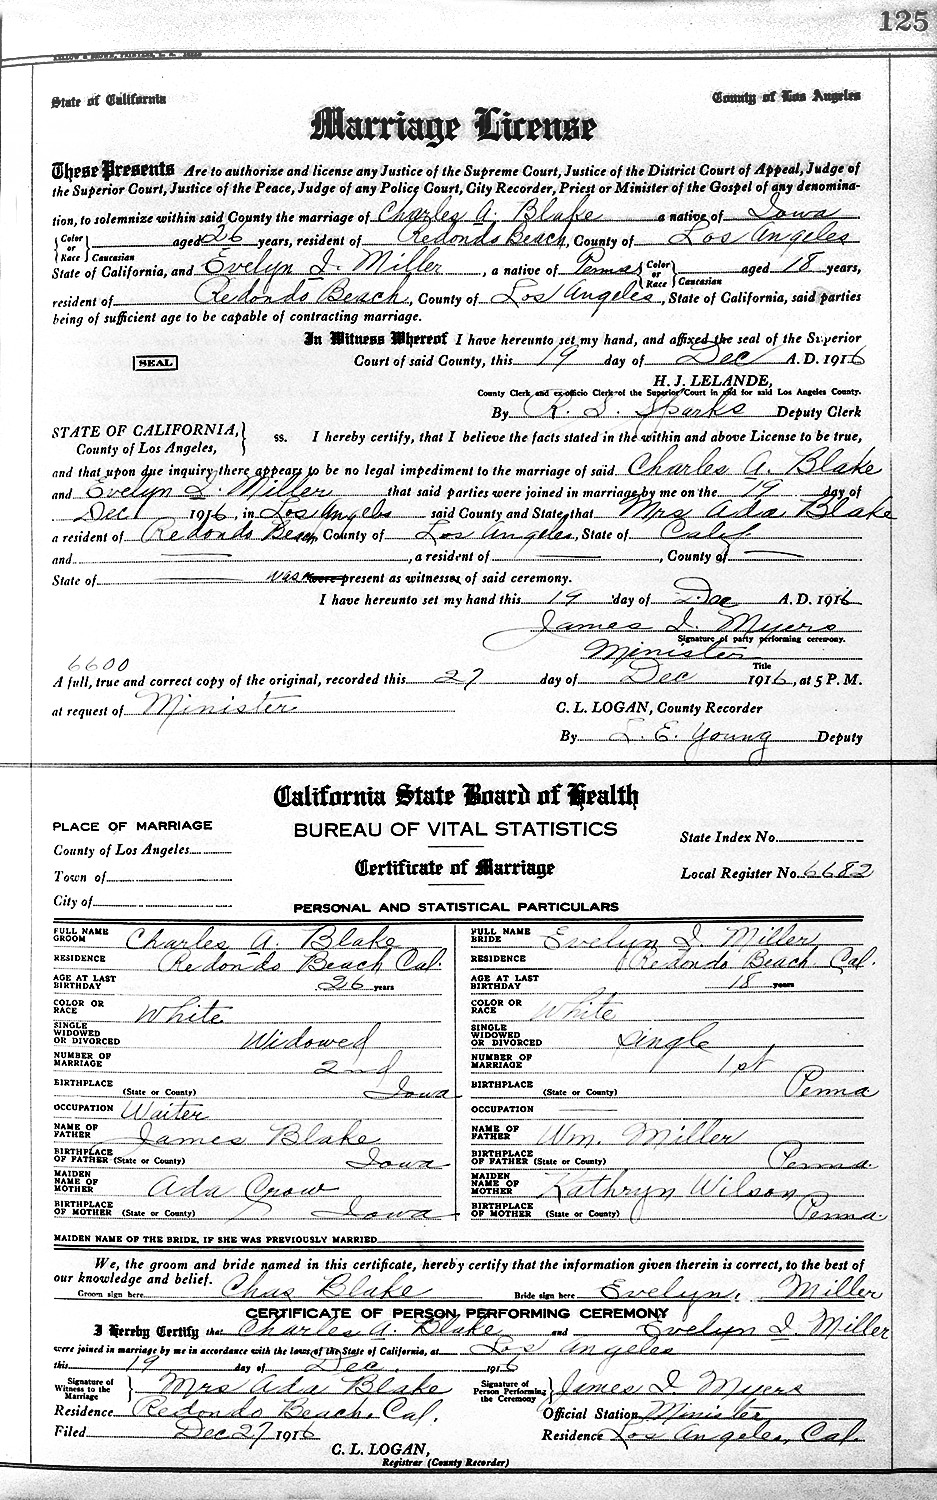 125
State of California County of Los Angeles
Marriage License
These Presents Are to authorize and license any Justice of the Supreme Court, Justice of the District Court of Appeal, Judge of
the Superior Court, Justice of the Peace, Judge of any Police Court, City Recorder, Priest or Minister of the Gospel of any denomina-
tion, to solemnize within said County the marriage of Charles A. Blake a native of Iowa
Color or Race Caucasian aged 26 years, resident of Redondo Beach, County of Los Angeles
State of California, and Evelyn I. Miller, a native of Penna Color or Race Caucasian aged 18 years,
resident of Redondo Beach, County of Los Angeles, State of California, said parties
being of sufficient age to be capable of contracting marriage.
In Witness Whereof I have hereunto set my hand, and affixed the seal of the Superior
SEAL Court of said County, this 19 day of Dec A. D. 1916
H. J. LELANDE,
County Clerk and ex-officio Clerk of the Superior Court in and for said Los Angeles County.
By R. S. Sparks Deputy Clerk
STATE OF CALIFORNIA, County of Los Angeles, ss. I hereby certify, that I believe the facts stated in the within and above License to be true,
and that upon due inquiry there appears to be no legal impediment to the marriage of said Charles A. Blake
and Evelyn I. Miller that said parties were joined in marriage by me on the 19 day of
Dec 1916, in Los Angeles said County and State, that Mrs Ada Blake
a resident of Redondo Beach, County of Los Angeles, State of Calif
and , a resident of , County of
State of was were present as witnesses of said ceremony.
I have hereunto set my hand this 19 day of Dec A. D. 1916
James I. Myers
Signature of party performing ceremony.
Minister
Title
6600
A full, true and correct copy of the original, recorded this 27 day of Dec 1916, at 5 P. M.
at request of Minister C. L. LOGAN, County Recorder
By L. E. Young Deputy
California State Board of Health
PLACE OF MARRIAGE BUREAU OF VITAL STATISTICS State Index No.
County of Los Angeles
Town of Certificate of Marriage Local Register No. 6682
City of
PERSONAL AND STATISTICAL PARTICULARS
FULL NAME GROOM Charles A. Blake FULL NAME BRIDE Evelyn I. Miller
RESIDENCE Redondo Beach Cal. RESIDENCE Redondo Beach Cal.
AGE AT LAST BIRTHDAY 26 years AGE AT LAST BIRTHDAY 18 years
COLOR OR RACE White COLOR OR RACE White
SINGLE WIDOWED OR DIVORCED Widowed SINGLE WIDOWED OR DIVORCED Single
NUMBER OF MARRIAGE 2nd NUMBER OF MARRIAGE 1st
BIRTHPLACE (State or County) Iowa BIRTHPLACE (State or County) Penna
OCCUPATION Waiter OCCUPATION
NAME OF FATHER James Blake NAME OF FATHER Wm. Miller
BIRTHPLACE OF FATHER (State or County) Iowa BIRTHPLACE OF FATHER (State or County) Penna.
MAIDEN NAME OF MOTHER Ada Crow MAIDEN NAME OF MOTHER Kathryn Wilson
BIRTHPLACE OF MOTHER (State or County) Iowa BIRTHPLACE OF MOTHER (State or County) Penna.
MAIDEN NAME OF THE BRIDE, IF SHE WAS PREVIOUSLY MARRIED
We, the groom and bride named in this certificate, hereby certify that the information given therein is correct, to the best of
our knowledge and belief.
Groom sign here Chas Blake Bride sign here Evelyn. Miller
CERTIFICATE OF PERSON PERFORMING CEREMONY
I Hereby Certify that Charles A. Blake and Evelyn I. Miller
were joined in marriage by me in accordance with the laws of the State of California, at Los Angeles
this 19 day of Dec. 1916
Signature of Witness to the Marriage Mrs Ada Blake Signature of Person Performing the Ceremony James I Myers
Residence Redondo Beach. Cal. Official Station Minister
Filed Dec 27 1916 Residence Los Angeles, Cal.
C. L. LOGAN,
Registrar (County Recorder)